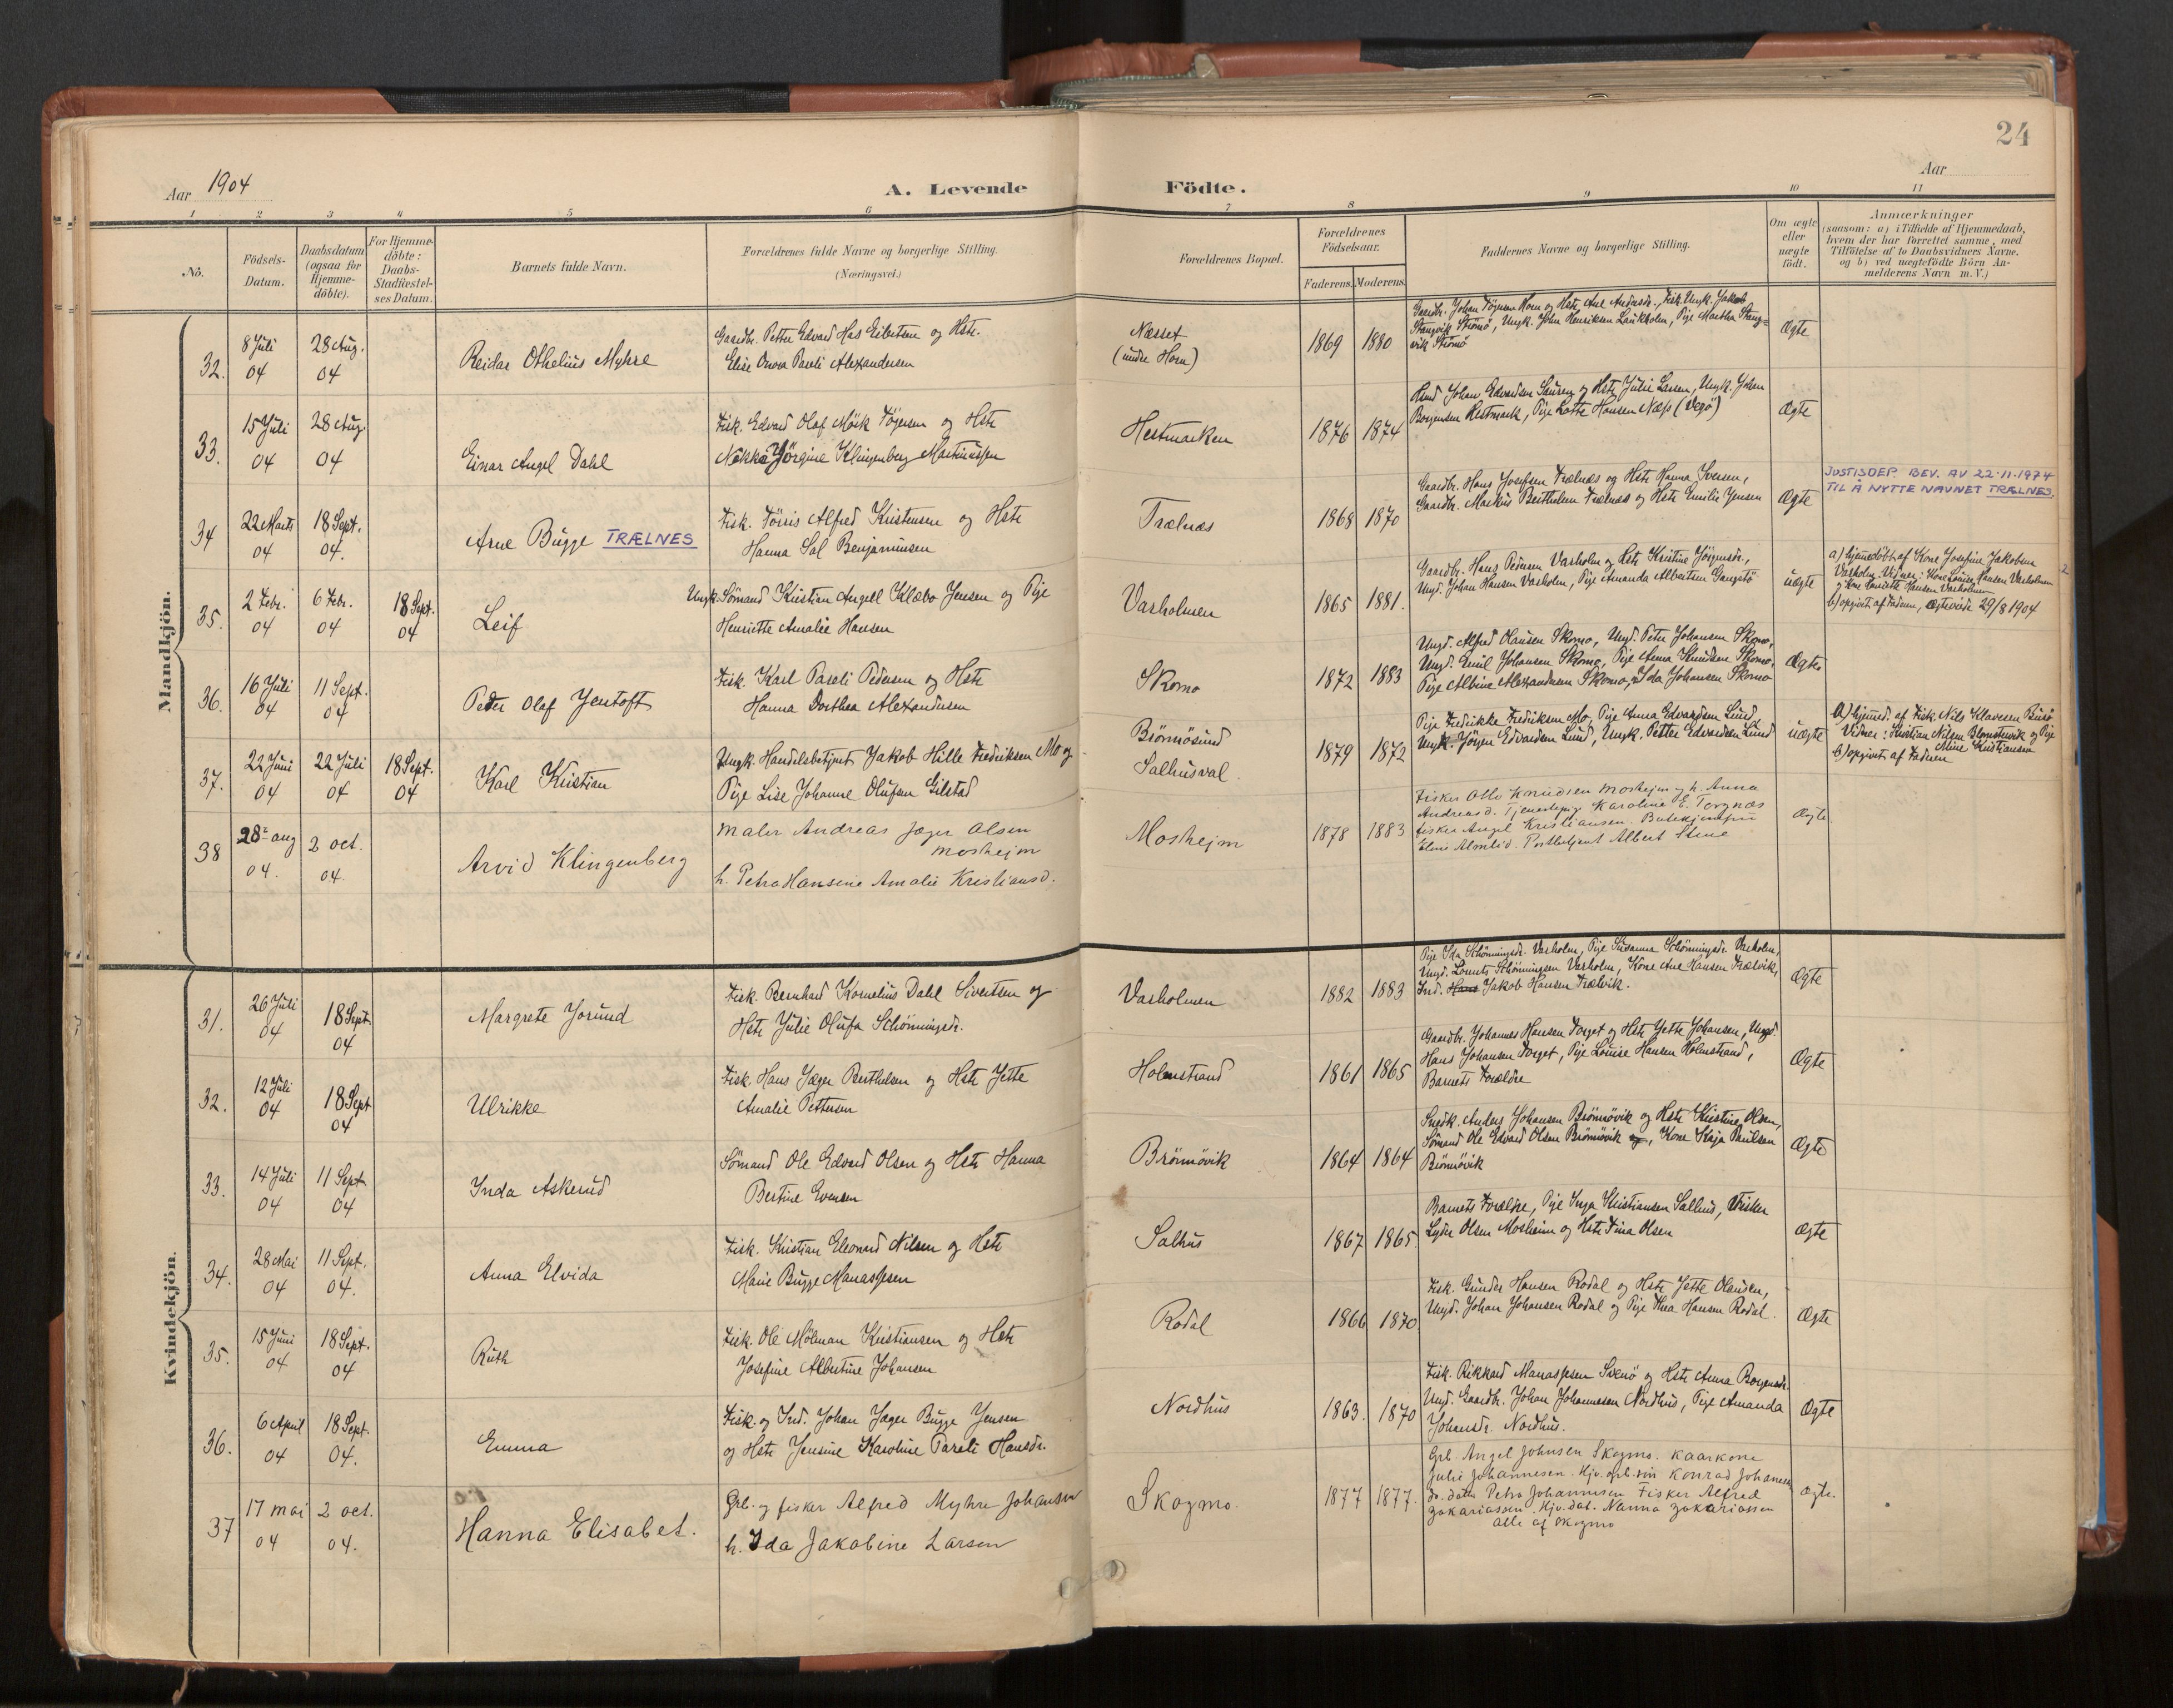 24
Aar 1904
A. Levende
Födte.
Aar
1 2 3 4 5 6 7 8 9 10 11
No.
Födsels-
Datum.
Daabsdatum
(ogsaa for
Hjemme-
döbte).
For Hjemme-
döbte:
Daabs-
Stadfæstel-
ses Datum.
Barnets fulde Navn.
Forældrenes fulde Navne og borgerlige Stilling.
(Næringsvei.)
Forældrenes Bopæl.
Forældrenes
Födselsaar.
Faderens. Moderens.
Faddernes Navne og borgerlige Stilling.
Om ægte
eller
uægte
födt.
Anmærkninger
(saasom: a) i Tilfælde af Hjemmedaab,
hvem der har forrettet samme, med
Tilföielse af to Daabsvidners Navne.
og b) ved uægtefödte Börn An-
melderens Navn m. V.)
Mandkjön.
32.
8 Juli
04
28 Aug.
04
Reidar Othelius Myhre
Gaardbr. Petter Edvard Has Eibertsen og Hstr.
Elise Onora Pareli Alexandersen
Næsset
(under Horn)
1869 1880
Gaardbr. Johan Törgersen Horn og Hstr. Ane Andersdr., Fisk. Ungk. Jakob
Stangvik Strömö, Ungk. John Henriksen Laukholm, Pige Martha Stang-
vik Strömö
Ægte
33.
15 Juli
04
28 Aug.
04
Einar Angel Dahl
Fisk. Edvard Olaf Mörk Törgersen og Hstr
Nekka Jörgine Klingenberg Martinussen
Hestmarken
1876 1874
Johan Edvardsen Sauren og Hstr Julie Larsen, Ungk. Johan
Borgersen Hestmark, Pige Lotte Hansen Næss (Vegö)
Ægte
34
22 Marts
04
18 Sept.
04.
Arne Bugge TRÆLNES
Fisk. Törris Alfred Kristensen og Hstr
Hanna Sal Benjaminsen
Trælnæs
1868 1870
Gaardbr. Hans Josefsen Trælnæs og Hstr Hanna Iversen,
Gaardbr. Markus Berthelsen Trælnæs og Hstr Emilie Jensen
Ægte
JUSTISDEP. BEV. AV 22-11-1974
TIL Å NYTTE NAVNET TRÆLNES.
35.
2 Febr.
04
6 Febr.
04
18 Sept.
04
Leif
Ungk. Sömand Kristian Angell Klæbo Jensen og Pige
Henriette Amalie Hansen
Varholmen
1865 1881.
Gaardbr. Hans Pedersen Varholm og Hstr Kristine Jörgensdr.,
Ungd. Johan Hansen Varholm, Pige Amanda Albertsen Gangstö
uægte
a) hjemmedöbt af Kone Josefine Jakobsen
Varholm. Vidner: Kone Lovise Hansen Varholmen
og Kone Henriette Hansen Varholmen
b) opgivet af Faderen, Ægteviede 29/8 1904
36.
16 Juli
04
11 Sept.
04
Peder Olaf Jentoft
Fisk. Karl Pareli Pedersen og Hstr
Hanna Dorthea Alexandersen
Skomo
1872 1883
Ungd. Alfred Olausen Skomo, Ungd. Peter Johansen Skomo,
Ungd. Emil Johansen Skomo, Pige Anna Knudsen Skomo,
Pige Albine Alexandersen Skomo, Ida Johansen Skomo
Ægte
37.
22 Juni
04
22 Juli
04
18 Sept.
04
Karl Kristian
Ungk. Handelsbetjent Jakob Hille Fredriksen Mo og
Pige Lise Johanne Olufsen Gilstad
Brönnösund
Salhusval.
1879 1872
Pige Fredrikke Fredriksen Mo, Pige Anna Edvardsen Lund
Ungk. Jörgen Edvardsen Lund, Ungk. Petter Edvardsen Lund
uægte
a) hjemmed. af Fisk. Nils Klavesen Busö
Vidner: Kristian Nilsen Blomsövik og Pige
Mine Kristiansen
b) opgivet af Faderen
38
28 aug
04.
2 oct.
04.
Arvid Klingenberg
Maler Andreas Jæger Olsen
Mosheim
h. Petra Hansine Amalie Kristiansd.
Mosheim
1878 1883
Fisker Otto Knudsen Mosheim og h. Anna
Andreasd. Tjenestepig Karoline E. Torgnæs
fisker Angel Kristiansen. Butikjomfru
Elnie Almlid. Postbetjent Albert Stene
Ægte
Kvindekjön.
31.
26 Juli
04
18 Sept.
04
Margrete Jorund
Fisk. Bernhard Kornelius Dahl Sivertsen og
Hstr Julie Olufa Schönningsdr.
Varholmen
1882 1883
Pige Ida Schönningsdr. Varholm, Pige Susanna Schönningsdr. Varholm,
Ungd. Lorents Schönningsen Varholm, Kone Ane Hansen Trælvik,
Ind. Hans Jakob Hansen Trælvik.
Ægte
32.
12 Juli
04
18 Sept
04
Ulrikke
Fisk. Hans Jæger Berthelsen og Hstr Jette
Amalie Pettersen
Holmstrand
1861 1865
Gaardbr. Johannes Hansen Torget og Hstr Jette Johansen, Ungd.
Hans Johansen Torget, Pige Louise Hansen Holmstrand,
Barnets Forældre
Ægte
33.
14 Juli
04
11 Sept.
04
Inda Askerud
Sömand Ole Edvard Olsen og Hstr Hanna
Bertine Evensen
Brönnövik
1864 1864
Snedk. Anders Johansen Brönnövik og Hstr Kristine Olsen,
Sömand Ole Edvard Olsen Brönnövik og, Kone Kaja Paulsen
Brönnövik
Ægte
34.
28 Mai
04
11 Sept.
04.
Anna Elvida
Fisk. Kristian Eleonard Nilsen og Hstr
Marie Bugge Manassesen
Salhus
1867 1865.
Barnets Forældre, Pige Inga Kristiansen Salhus, Fisker
Lyder Olsen Mosheim og Hstr Tina Olsen
Ægte
35.
15 Juni
04
18 Sept.
04
Ruth
Fisk. Ole Mölman Kristiansen og Hstr
Josefine Albertine Johansen
Rodal
1866 1870
Fisk. Gunder Hansen Rodal og Hstr Jette Olausen,
Ungd. Johan Johansen Rodal og Pige Thea Hansen Rodal.
Ægte
36.
6 April
04
18 Sept.
04.
Emma
Fisk. og Ind. Johan Jæger Bugge Jensen
og Hstr Jensine Karoline Pareli Hansdr.
Nordhus
1863. 1870
Fisk. Rikkard Manassesen Sænö og Hstr Anna Borgersdr.
Ungd. Gaardbr. Johan Johannessen Nordhus, Pige Amanda
Johansdr. Nordhus.
Ægte
37
17 mai
04
2 oct.
04.
Hanna Elisabet.
Grb. og fisker Alfred Myhre Johansen
h. Ida Jakobine Larsen
Skogmo.
1877 1877.
Grb. Angel Johnsen Skogmo. Kaarkone
Julie Johannesen. Hjv. grb. sön Konrad Johansen
do. datter Petra Johannesen Fisker Alfred
Zakariassen. Hjv. dat. Nanna Zakariassen
alle af Skogmo
ægte.